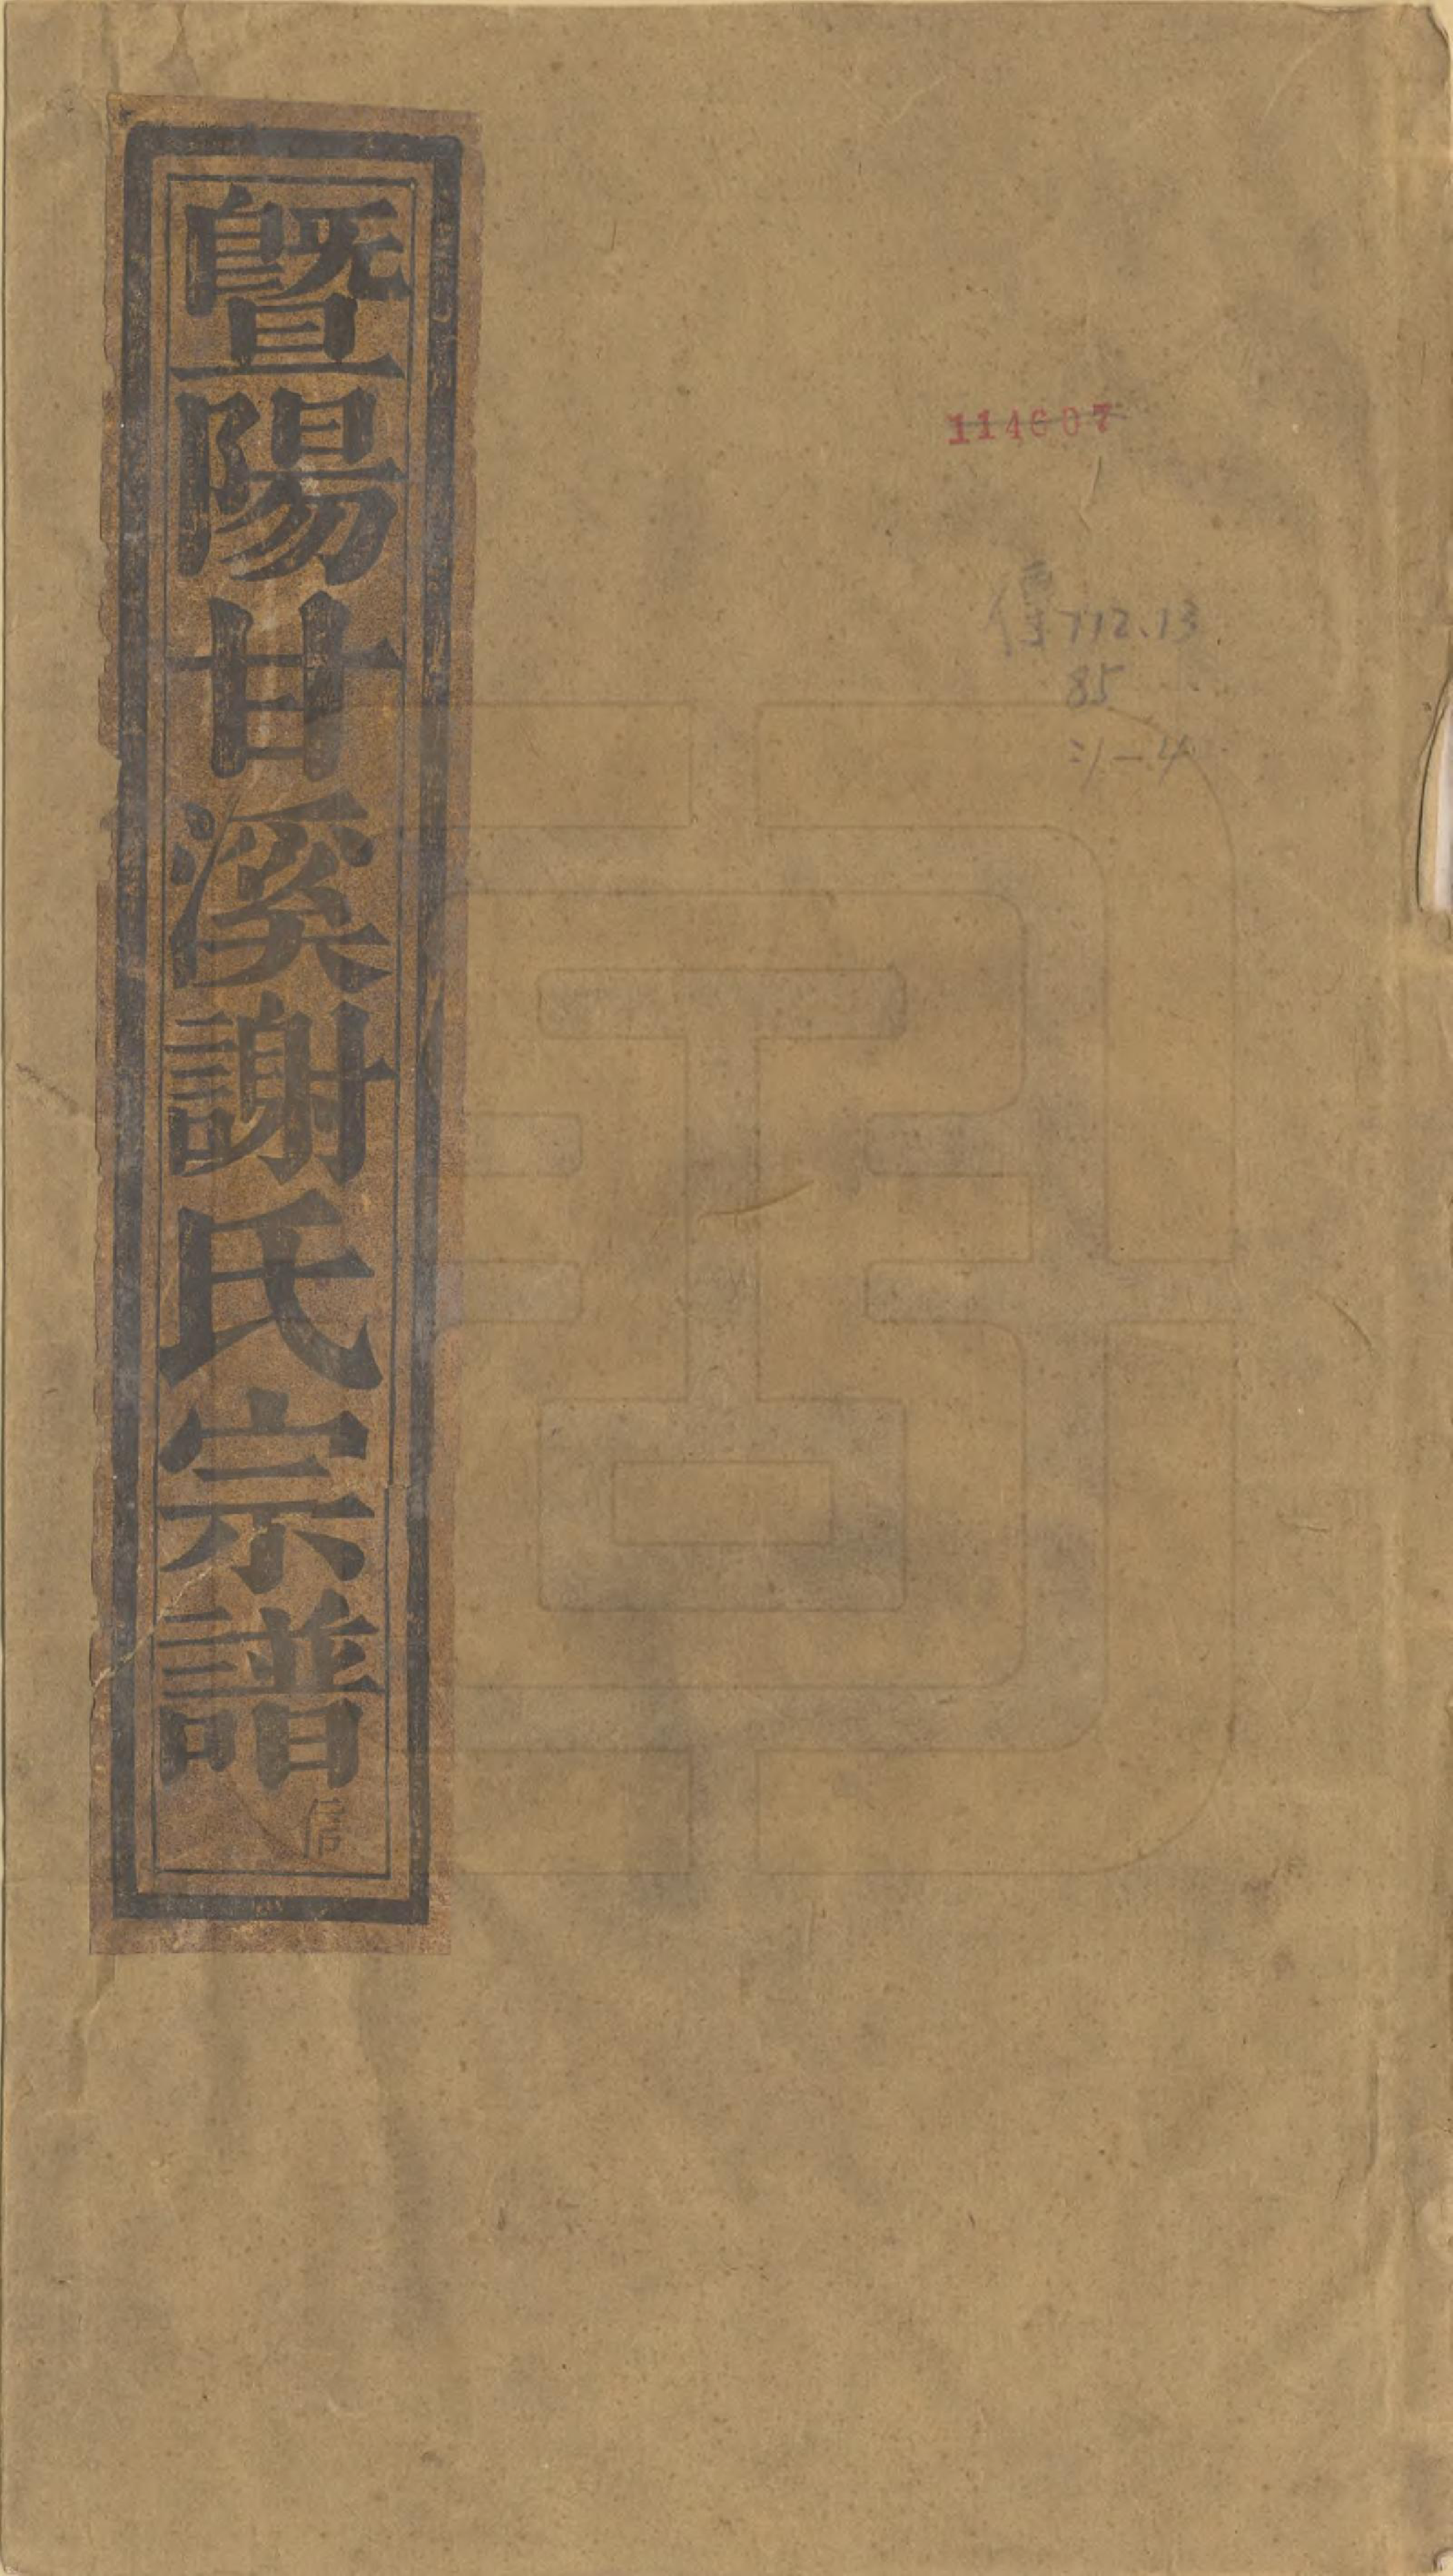 暨陽甘溪謝氏宗譜
信
114607
傳772.13
85
:1-4